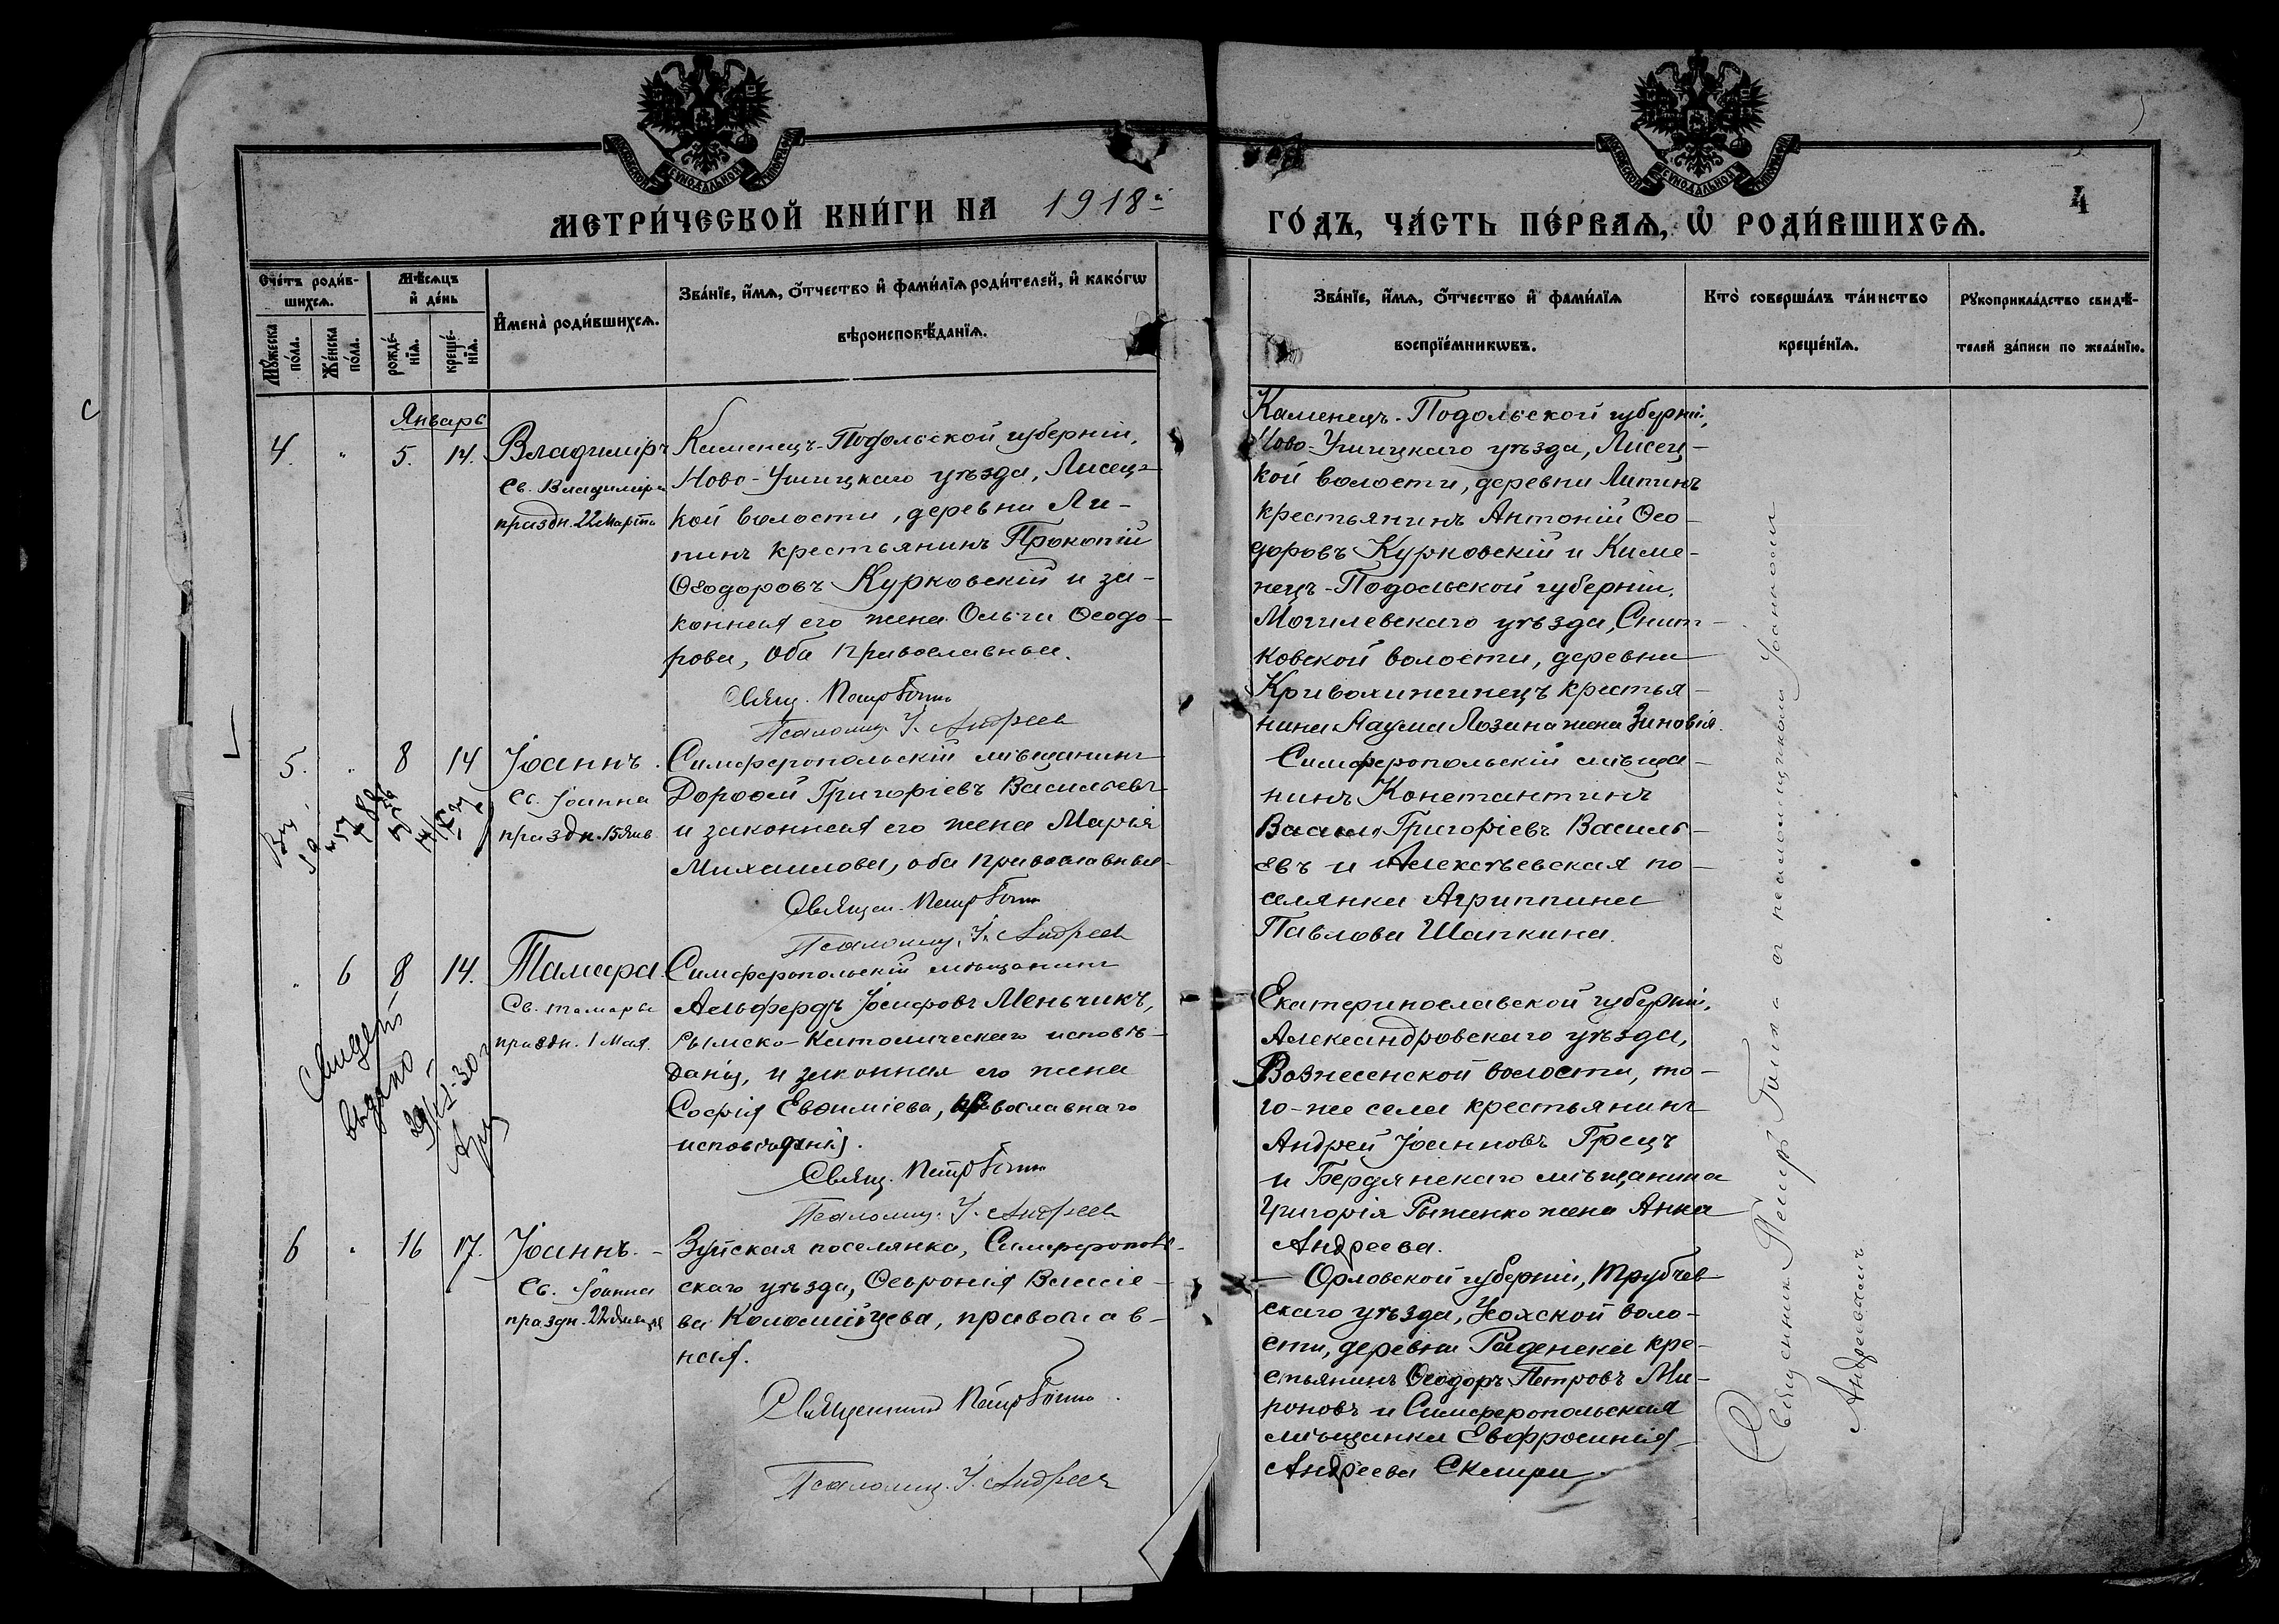 МЕТРИ́ЧЕСКОЙ КНИ́ГИ НА 1918й
ГО́ДЪ, ЧА́СТЬ ПЕ́РВАѦ, Ѡ РОДИ́ВШИХСѦ.
4
Сче́тъ роди́в-
шихсѧ.
Мѣ́сѧцъ
и де́нь
Имена̀ роди́вшихсѧ.
Зва́нїе, и́мѧ, о́тчество и фами́лїѧ роди́телей, и како́гѡ
вѣроисповѣ́данїѧ.
Мꙋ́жеска
по́ла.
Же́нска
по́ла.
рожде́-
нїѧ.
креще́-
нїѧ.
Зва́нїе, и́мѧ, о́тчество и фами́лїѧ
воспрїе́мникѡвъ.
Кто̀ соверша́лъ та́инство
креще́нїѧ.
Рꙋкоприкла́дство свидѣ́-
телей за́писи по жела́нїю.
Январь
4. " 5. 14. Владиміръ
Св. Владиміра
праздн. 22 Марта
Каменецъ-Подольской губерніи,
Ново-Ушицкаго уѣзда, Лисец-
кой волости, деревни Ли-
пинъ крестьянинъ Прокопій
Ѳеодоровъ Курковскій и за-
конная его жена Ольга Ѳеодо-
рова, оба православные.
Свящ. Петр
Псаломщ. І. Андреев
Каменецъ-Подольской губерніи,
Ново-Ушицкаго уѣзда, Лисец-
кой волости, деревни Липинъ
крестьянинъ Антоній Ѳео-
доровъ Курковскій и Каме-
нецъ-Подольской губерніи,
Могилевскаго уѣзда, Снит-
ковской волости, деревни
Кривохижинецъ крестья-
нина Наума Лозина жена Зиновія.
5. " 8 14 Іоаннъ.
Св. Іоанна
праздн. 15 Янв.
Симферопольскій мѣщанинъ
Дороѳей Григоріевъ Васильевъ
и законная его жена Марія
Михаилова, оба православные.
Священ. Петр
Псаломщ. І. Андреев
Симферопольскій мѣща-
нинъ Константинъ
Григоріевъ Василь-
евъ и Алексѣевская по-
селянка Агриппина
Павлова Шапкина.
" 6 8 14. Тамара.
Св. Тамары
праздн. 1 Мая.
Свидет
выдано
Симферопольскій мѣщанинъ
Альфердъ Іосифовъ Меньчикъ,
Рымско-Католическаго исповѣ-
данія, и законная его жена
Софія Евѳиміева, православнаго
исповѣданія.
Свящ. Петр
Псаломщ. І. Андреев
Екатеринославской губерніи,
Александровскаго уѣзда,
Вознесенской волости, то-
го-же села крестьянинъ
Андрей Іоанновъ Грецъ
и Бердянскаго мѣщанина
Григорія Рыженко жена Анна
Андреева.
6 " 16 17. Іоаннъ.
Св. Іоанна
праздн. 22
Зуйская поселянка, Симферополь-
скаго уѣзда, Ѳевронія Васиlie-
ва Коломійцева, православ-
ная.
Священник Петр
Псаломщ. І. Андреев
Орловской губерніи, Трубчев-
скаго уѣзда, воло-
сти, деревни кре-
стьянинъ Ѳеодоръ Петровъ Ми-
роновъ и Симферопольская
мѣщанка Евфросинія
Андреева
Священник Петръ с псаломщиком Іоанном
Андреевым